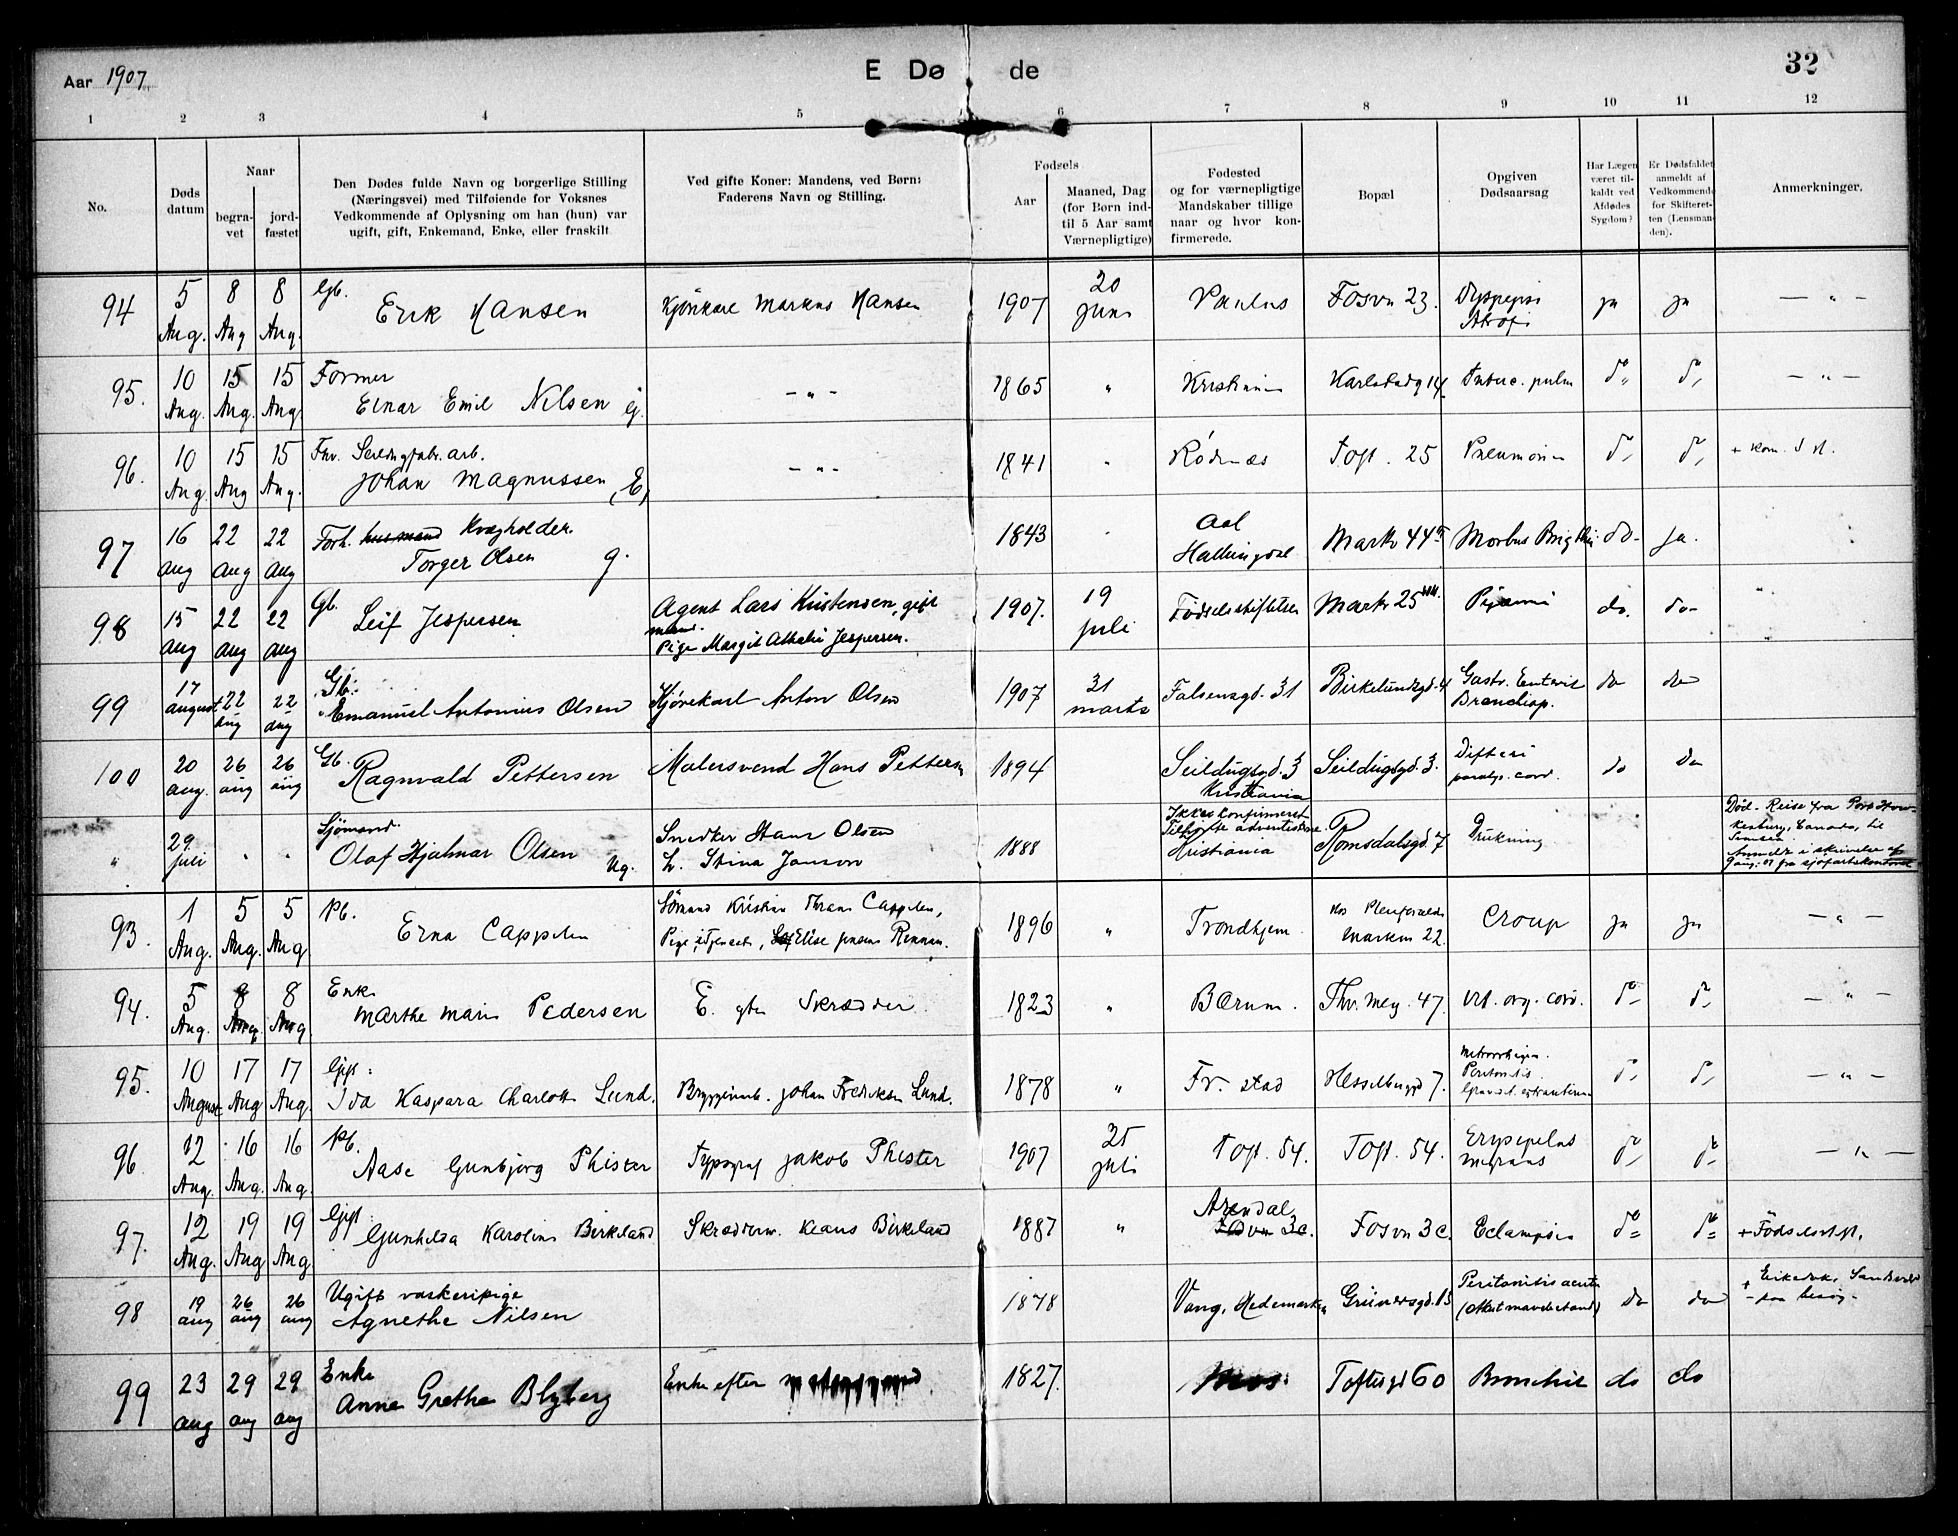 Aar 1907.
E Dø de
32
1 2 3 4 5 6 7 8 9 10 11 12
No.
Døds datum
Naar
begra-vet
jord-fæstet
Den Dødes fulde Navn og borgerlige Stilling
(Næringsvei) med Tilføiende for Voksnes
Vedkommende af Oplysning om han (hun) var
ugift, gift, Enkemand, Enke, eller fraskilt
Ved gifte Koner: Mandens, ved Børn:
Faderens Navn og Stilling.
Fødsels
Aar
Maaned, Dag
(for Børn ind-
til 5 Aar samt
Værnepligtige)
Fødested
og for værnepligtige
Mandskaber tillige
naar og hvor kon-
firmerede.
Bopæl
Opgiven
Dødsaarsag
Har Lægen
været til-
kaldt ved
Afdødes
Sygdom?
Er Dødsfaldet
anmeldt af
Vedkommende
for Skifteret-
ten (Lensman-
den).
Anmerkninger.
94 5 Aug. 8 Aug 8 Aug. Gb. Erik Hansen Kjörekarl Markus Hansen 1907 20 Juni Paulus Fosvn 23. Dyspepsi Atrofi ja ja — " —
95. 10 Aug. 15 Aug. 15 Aug. Former Einar Emil Nilsen G. — " — 1865 " Kristiania Karlstadg 14 Tuberc. pulm do do — " —
96. 10 Aug. 15 Aug 15 Aug. Fhv. Seildugfabr. arb. Johan Magnussen (E) — " — 1841 " Rødenæs Toft. 25 Pneumoni do do + Kom. S. H.
97 16 aug 22 aug 22 aug Forh. husmand Kvægholder. Torger Olsen g. 1843 Aal Hallingdal Markv 44 Morbus Brigthii do ja.
98 15 aug 22 aug 22 aug Gb. Leif Jespersen Agent Lars Kristensen, gift mand. Pige Margit Athalie Jespersen. 1907. 19 juli Fødselsstiftelsen Markv 25 Pyæmi do. do
99 17 august 22 aug 22 aug Gb. Emanuel Antonius Olsen Kjørekarl Anton Olsen 1907 31 marts Falsensgd. 31 Birkelundsgd. 4 Gastr. Enterit Branchiop. do do
100 20 aug. 26 aug 26 aug Gb. Ragnvald Pettersen Malersvend Hans Pettersen 1894 Seildugsgd. 3 Kristiania Seildugsgd. 3. Difteri paralys. cord. do do
" 29 juli " " Sjømand Olaf Hjalmar Olsen Ug. Snedker Hans Olsen h. Stina Janson 1888 Ikke konfirmeret Tilhørte adventisterne. Kristiania Romsdalsgd. 7 Drukning Død - Reise fra Port Haw-kesbury, Canada, til Anmeldt i skrivelse af 9 aug. 07 fra sjøfartskontoret
93. 1 Aug. 5 Aug. 5 Aug Pb. Erna Cappelen Sömand Kristian Thrane Cappelen, Pige, Elise Jensen 1896 " Trondhjem Hos Plenforvalter Markvn 22. Croup ja ja — " —
94. 5 Aug. 8 Aug. 8 Aug Enke Marthe Marie Pedersen E. efter Skrædder 1823 " Bærum. Thv. Mey. 47. Vit. org. cord. do do — " —
95. 10 August 17 Aug 17 Aug. Gift: Ida Kaspara Charlotte Lund. Bryggeriarb. Johan Fredriksen Lund. 1878 " Fr. stad Hesselbergsgd 7. Peritonitis. do do — " —
96. 12 Aug. 16 Aug. 16 Aug. Pb. Aase Gunbjørg Phister Typograf Jakob Phister 1907 25 juli Toft. 54. Toft. 54. Erysipelas migrans do do — " —
97. 12 Aug. 19 Aug 19 Aug Gift Gunhilda Karoline Birkeland Skrædderm. Klaus Birkeland 1887 " Arendal Fosvn 3c. Fosvn 3c. Eclampsia do do + Födselsst.
98 19 aug 26 aug 26 aug Ugift vaskeripige Agnethe Nilsen 1878 Vang, Hedemarken Grünersgd. 15 Peritonitis acuta do do + paa besøg -
99 23 aug 29 aug 29 aug Enke Anna Grethe Blyberg Enke efter 1827. Mos Toftesgd 60 Bronchit do do